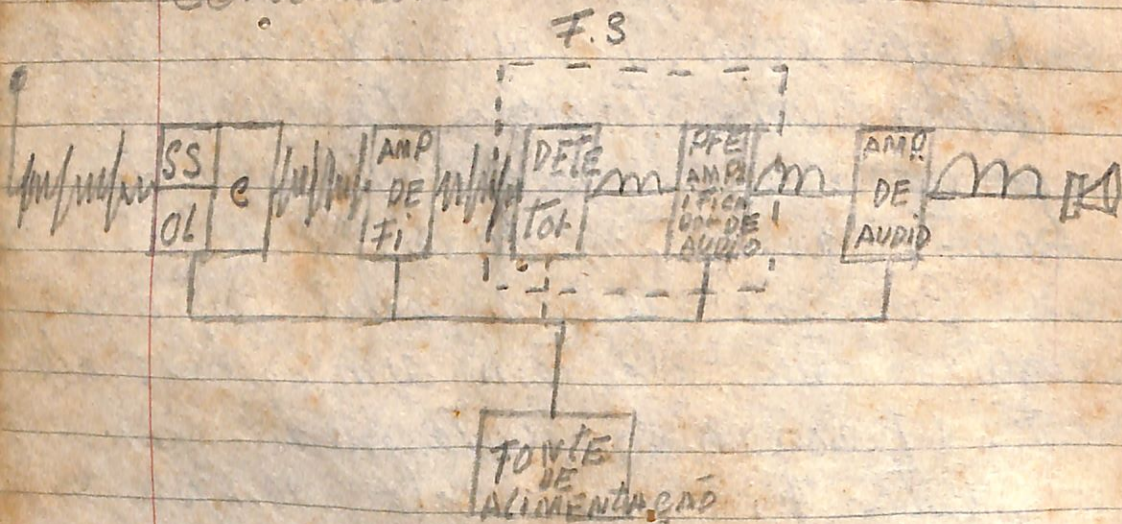 F.3
SS
OL
C
AMP
DE
FI
DETE
TOR
PRE
AMPL
IFICA
DOR DE
AUDIO
AMP.
DE
AUDIO
FONTE
DE
ALIMENTAÇÃO